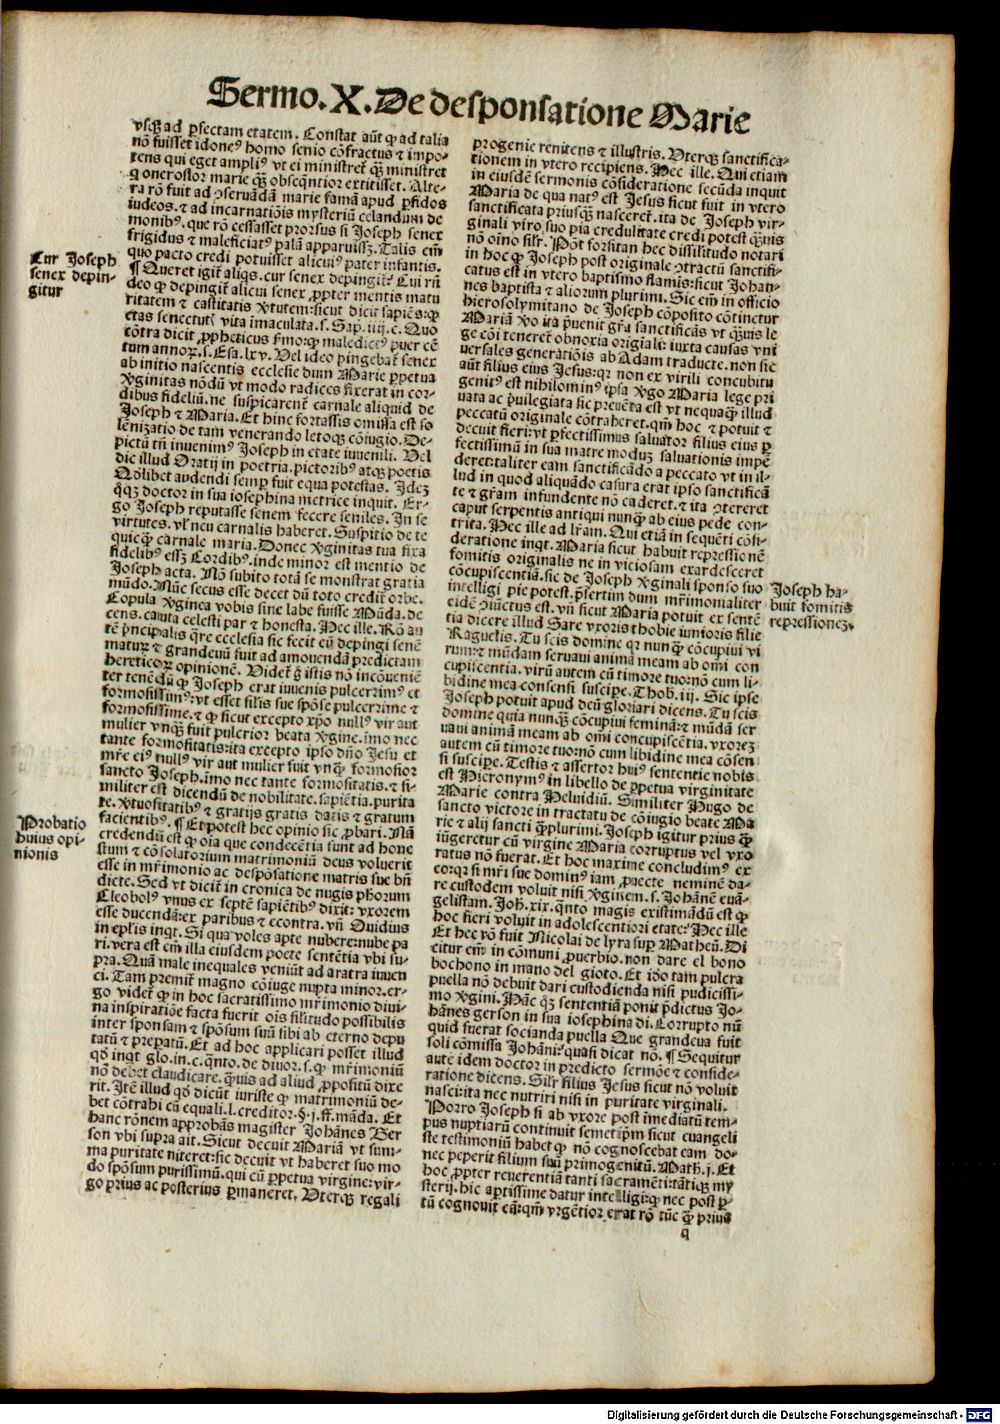 Sermo. X. De desponsatione Marie
vsqꝫ ad ꝑfectam etatem. Constat aūt ꝙ ad talia
nō fuisset idoneꝰ homo senio cōfractus ⁊ impo-
tens qui eget ampliꝰ vt ei ministret᷑ qͣꝫ ministret
⁊ ad incarnatiōis mysteriū celandum de
monibꝰ. que rō cessasset prorsus si Joseph senex
frigidus ⁊ maleficiatꝰ palā apparuissꝫ. Talis em̄
quo pacto credi potuisset alicuiꝰ pater infantis.
¶ Queret igit᷑ aliqs. cur senex depingit᷑? Cui rn̄
deo ꝙ depingit᷑ alicui senex ꝓpter mentis matu
ritatem ⁊ castitatis ꝟtutem: sicut dicit sapiēs: ꝙ
etas senectutꝭ vita īmaculata. s. Sap. iiij. c. Quo
cōtra dicit ꝓpheticus ẜmo: ꝙ maledictꝰ puer cē
tum annoꝝ. s. Esa. lxv. Vel ideo pingebat᷑ senex
ab initio nascentis ecclesie dum Marie ꝑpetua
ꝟginitas nōdū vt modo radices fixerat in cor-
dibus fideliū. ne suspicarent᷑ carnale aliquid de
Joseph ⁊ Maria. Et hinc fortassis omissa est so
lēnizatio de tam venerando letoqꝫ cōiugio. De-
pictū tn̄ inuenimꝰ Joseph in etate iuuenili. Vel
dic illud Oratij in poetria. pictoribꝰ atqꝫ poetis
Qdlibet audendi semꝑ fuit equa potestas. Idez
qqꝫ doctor in sua iosephina metrice inquit. Er-
go Joseph reputasse senem fecere seniles. In se
virtutes. vl̓ neu carnalis haberet. Suspitio de te
quicqͣꝫ carnale maria. Donec ꝟginitas tua fixa
fidelibꝰ essꝫ Cordibꝰ. inde minor est mentio de
Joseph acta. Nō subito totā se monstrat gratia
mūdo. Nūc secus esse decet dū toto credit᷑ orbe.
Copula ꝟginea vobis sine labe fuisse Mūda. de
cens. cauta celesti par ⁊ honesta. Hec ille. Rō au
tē p̄ncipalis qͣre ecclesia sic fecit eū depingi senē
maturꝝ ⁊ grandeuū fuit ad amouendā predictam
hereticoꝝ opinionē. Videt᷑ g̊ istis nō incōueniē
ter tenēdū ꝙ Joseph erat iuuenis pulcerrimꝰ et
formosissimꝰ: vt esset similis sue spōse pulcerrime ⁊
formosissime. ⁊ ꝙ sicut excepto xp̄o nullꝰ vir aut
mulier vnqͣꝫ fuit pulcrior beata ꝟgine. īmo nec
tante formositatis: ita excepto ipso dn̄o Jesu et
mr̄e eiꝰ nullꝰ vir aut mulier fuit vnqͣꝫ formosior
sancto Joseph. īmo nec tante formositatis. ⁊ si-
militer est dicendū de nobilitate. sapiētia. purita
te. ꝟtuositatibꝰ ⁊ gratijs gratis datis ⁊ gratum
facientibꝰ. ¶ Et potest hec opinio sic ꝓbari. Nā
credendū est ꝙ oīa que condecētia sunt ad hone
stum ⁊ cōsolatorium matrimoniū deus voluerit
esse in mr̄imonio ac despōsatione matris sue bn̄
dicte. Sed vt dicit᷑ in cronica de nugis pħorum
Cleobolꝰ vnus ex septē sapiētibꝰ dixit: vxorem
esse ducendā: ex paribus ⁊ econtra. vn̄ Ouidius
in ep̄lis inqt. Si qua voles apte nubere: nube pa
ri. vera est em̄ illa eiusdem poete sentētia vbi su-
pra. Quā male inequales veniūt ad aratra iuuen
ci. Tam premit᷑ magno cōiuge nupta minor. er-
go videt᷑ ꝙ in hoc sacratissimo mr̄imonio diui-
na inspiratiōe facta fuerit oīs silitudo possibilis
inter sponsam ⁊ spōsum suū sibi ab eterno depu
tatū ⁊ preparatū. Et ad hoc applicari posset illud
qd̓ inqt glo. in. c. qnto. de diuor. s. ꝙ mr̄imoniū
nō debet claudicare. qͣꝫuis ad aliud ꝓpositū dixe
rit. Itē illud qd̓ dicūt iuriste ꝙ matrimoniū de-
bet cōtrahi cū equali. l. creditor. §. j. ff. māda. Et
hanc rōnem approbās magister Johānes Ger
son vbi supra ait. Sicut decuit Mariā vt sum-
ma puritate niteret: sic decuit vt haberet suo mo
do spōsum purissimū. qui cū ꝑpetua virgine: vir-
go prius ac posterius ꝑmaneret. Vterqꝫ regali
Cur Joseph
senex depin-
gitur
Probatio
huius opi-
nionis
progenie renitens ⁊ illustris. Vterqꝫ sanctifica-
tionem in vtero recipiens. Hec ille. Qui etiam
in eiusdē sermonis cōsideratione secūda inquit
Maria de qua natꝰ est Jesus sicut fuit in vtero
sanctificata priusqͣꝫ nasceret᷑. ita de Joseph vir-
ginali viro suo pia credulitate credi potest qͣꝫuis
nō oīno silr̄. Pōt forsitan hec dissilitudo notari
in hoc ꝙ Joseph post originale ↄtractū sanctifi-
catus est in vtero baptismo flamis: sicut Johan-
nes baptista ⁊ aliorum plurimi. Sic em̄ in officio
hierosolymitano de Joseph cōposito cōtinetur
Mariā ꝟo ita p̄uenit gr̄a sanctificās vt qͣꝫuis le
ge cōi teneret᷑ obnoxia origīali: iuxta causas vni
uersales generatiōis ab Adam traducte. non sic
aūt filius eius Jesus: qꝛ non ex virili concubitu
genitꝰ est nihilominꝰ ipsa ꝟgo Maria lege pri
uata ac p̄uilegiata sic preuēta est vt nequaqͣꝫ illud
peccatū originale cōtraheret. qm̄ hoc ⁊ potuit ⁊
decuit fieri: vt ꝑfectissimus saluator filius eius ꝑ
fectissimū in sua matre moduꝫ saluationis impē
deret: taliter eam sanctificādo a peccato vt in il-
lud in quod aliquādo casura erat ipso sanctificā
te ⁊ gr̄am infundente nō caderet. ⁊ ita ↄtereret
caput serpentis antiqui nunqͣꝫ ab eius pede con-
trita. Hec ille ad lr̄am. Qui etiā in sequēti cōsi-
deratione inqt. Maria sicut habuit repressionē
fomitis originalis ne in viciosam exardesceret
cōcupiscentiā. sic de Joseph ꝟginali sponso suo
intelligi pie potest. p̄sertim dum mr̄imonialiter
eidē ↄiūctus est. vn̄ sicut Maria potuit ex sentē
tia dicere illud Sare vxoris thobie iunioris filie
Raguelis. Tu scis domine qꝛ nunqͣꝫ cōcupiui vi
rum: ⁊ mūdam seruaui animā meam ab om̄i con
cupiscentia. virū autem cū timore tuo: nō cum li-
bidine mea consensi suscipe. Thob. iij. Sic ipse
Joseph potuit apud deū gloriari dicens. Tu scis
domine quia nunqͣꝫ cōcupiui feminā: ⁊ mūdā ser
uaui animā meam ab om̄i concupiscētia. vxoreꝫ
autem cū timore tuo: nō cum libidine mea cōsen
si suscipe. Testis ⁊ assertor huiꝰ sententie nobis
est Hieronymꝰ in libello de ꝑpetua virginitate
Marie contra Heluidiū. Similiter Hugo de
sancto victore in tractatu de cōiugio beate Ma
rie ⁊ alij sancti qͣꝫplurimi. Joseph igitur prius qͣꝫ
iūgeretur cū virgine Maria corruptus vel vxo
ratus nō fuerat. Et hoc maxime concludimꝰ ex
eo: qꝛ si mr̄i sue dominꝰ iam ꝓuecte neminē da-
re custodem voluit nisi ꝟginem. s. Johānē euā-
gelistam. Joh̄. xix. qnto magis existimādū est ꝙ
hoc fieri voluit in adolescentiori etate? Hec ille
Et hec rō fuit Nicolai de lyra suꝑ Matheū. Di
citur em̄ in cōmuni ꝓuerbio. non dare el bono
bochono in mano del gioto. Et ido tam pulcra
puella nō debuit dari custodienda nisi pudicissi-
mo ꝟgini. Hāc qꝫ sententiā ponit p̄dictus Jo-
hānes gerson in sua iosephina di. Corrupto nū
quid fuerat socianda puella Que grandeua fuit
soli cōmissa Johāni? quasi dicat nō. ¶ Sequitur
aute idem doctor in predicto sermōe ⁊ conside-
ratione dicens. Silr̄ filius Jesus sicut nō voluit
nasci: ita nec nutriri nisi in puritate virginali.
Porro Joseph si ab vxore post īmediatū tem-
pus nuptiarū continuit semetip̄m sicut euangeli
ste testimoniū habet ꝙ nō cognoscebat eam do-
nec peperit filium suū primogenitū. Math̄. j. Et
hoc ꝓpter reuerentiā tanti sacramēti: tātiqꝫ my
sterij. hic aptissime datur intelligi: ꝙ nec post ꝑ-
tū cognouit eā: qm̄ vrgētior erat rō tūc qͣꝫ prius
q
Joseph ha-
buit fomitis
repressioneꝫ
Digitalisierung gefördert durch die Deutsche Forschungsgemeinschaft - DFG